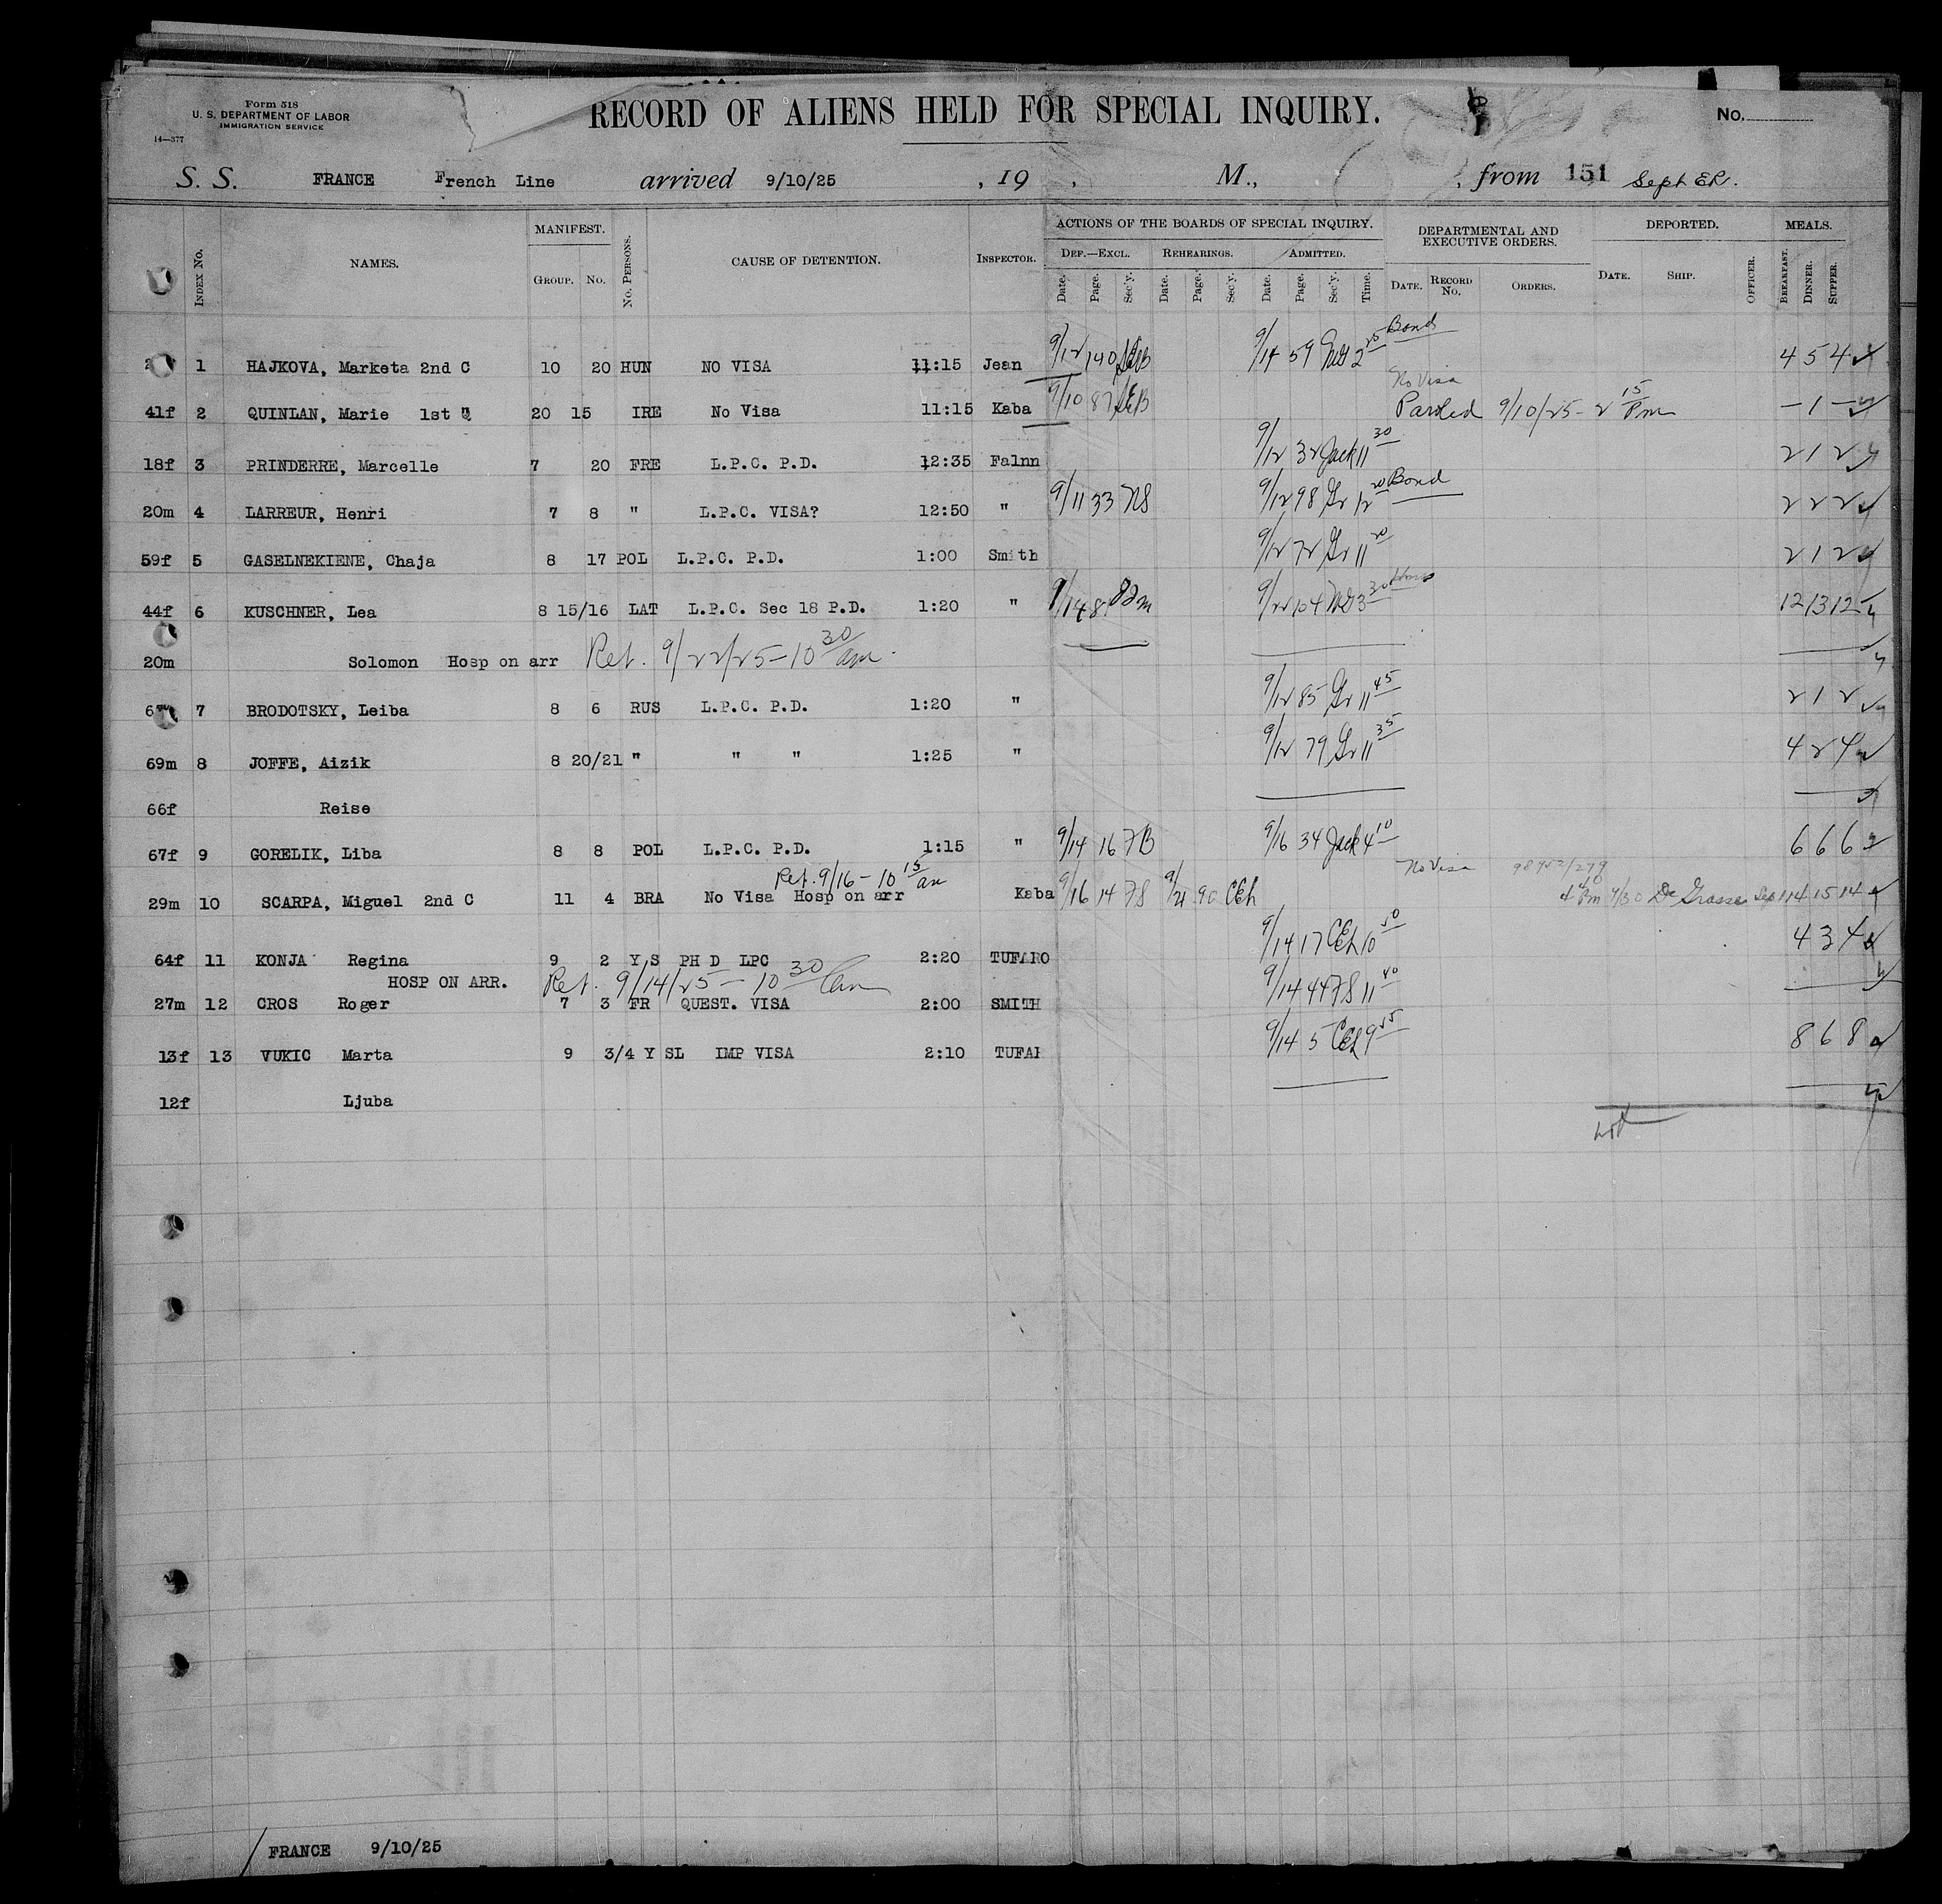 Form 518
U. S. DEPARTMENT OF LABOR
IMMIGRATION SERVICE
14—377
RECORD OF ALIENS HELD FOR SPECIAL INQUIRY.
No.
S. S. FRANCE French Line arrived 9/10/25 , 19 , M., , from 151 Sept ER.
INDEX No. NAMES. MANIFEST. GROUP. No. No. PERSONS. CAUSE OF DETENTION. INSPECTOR. ACTIONS OF THE BOARDS OF SPECIAL INQUIRY. DEF.—EXCL. Date. Page. Sec'y. REHEARINGS. Date. Page. Sec'y. ADMITTED. Date. Page. Sec'y. Time. DEPARTMENTAL AND EXECUTIVE ORDERS. DATE. RECORD No. ORDERS. DEPORTED. DATE. SHIP. OFFICER. MEALS. BREAKFAST. DINNER. SUPPER.
1 HAJKOVA, Marketa 2nd C 10 20 HUN NO VISA 11:15 Jean 9/12 140 9/14 59 2 25 Bond 4 5 4
41f 2 QUINLAN, Marie 1st 20 15 IRE No Visa 11:15 Kaba 9/10 87 No Visa Paroled 9/10/25 - 2 15 Pm – 1 –
18f 3 PRINDERRE, Marcelle 7 20 FRE L.P.C. P.D. 12:35 Falnn 9/12 32 Jack 11 30 2 1 2
20m 4 LARREUR, Henri 7 8 " L.P.C. VISA? 12:50 " 9/11 33 NS 9/12 98 Gr 12 20 Bond 2 2 2
59f 5 GASELNEKIENE, Chaja 8 17 POL L.P.C. P.D. 1:00 Smith 9/12 72 Gr 11 20 2 1 2
44f 6 KUSCHNER, Lea 8 15/16 LAT L.P.C. Sec 18 P.D. 1:20 " 9/14 8 9/22 104 3 30 12 13 12
20m Solomon Hosp on arr Ret. 9/22/25 – 10 30 am.
7 BRODOTSKY, Leiba 8 6 RUS L.P.C. P.D. 1:20 " 9/12 85 Gr 11 45 2 1 2
69m 8 JOFFE, Aizik 8 20/21 " " " 1:25 " 9/12 79 Gr 11 35 4 2 4
66f Reise
67f 9 GORELIK, Liba 8 8 POL L.P.C. P.D. 1:15 " 9/14 16 FB 9/16 34 Jack 4 10 6 6 6
Ret. 9/16 – 10 15 am No Visa 98952/279
29m 10 SCARPA, Miguel 2nd C 11 4 BRA No Visa Hosp on arr Kaba 9/16 14 FS 9/21 90 CEh 4 10 Pm 9/30 De Grasse Sep 14 15 14
64f 11 KONJA Regina 9 2 Y S PH D LPC 2:20 TUFARO 9/14 17 CEh 10 50 4 3 4
HOSP ON ARR. Ret. 9/14/25 – 10 30 am
27m 12 CROS Roger 7 3 FR QUEST. VISA 2:00 SMITH 9/14 44 FS 11 40
13f 13 VUKIC Marta 9 3/4 Y SL IMP VISA 2:10 TUFAR 9/14 5 CEh 9 55 8 6 8
12f Ljuba
FRANCE 9/10/25